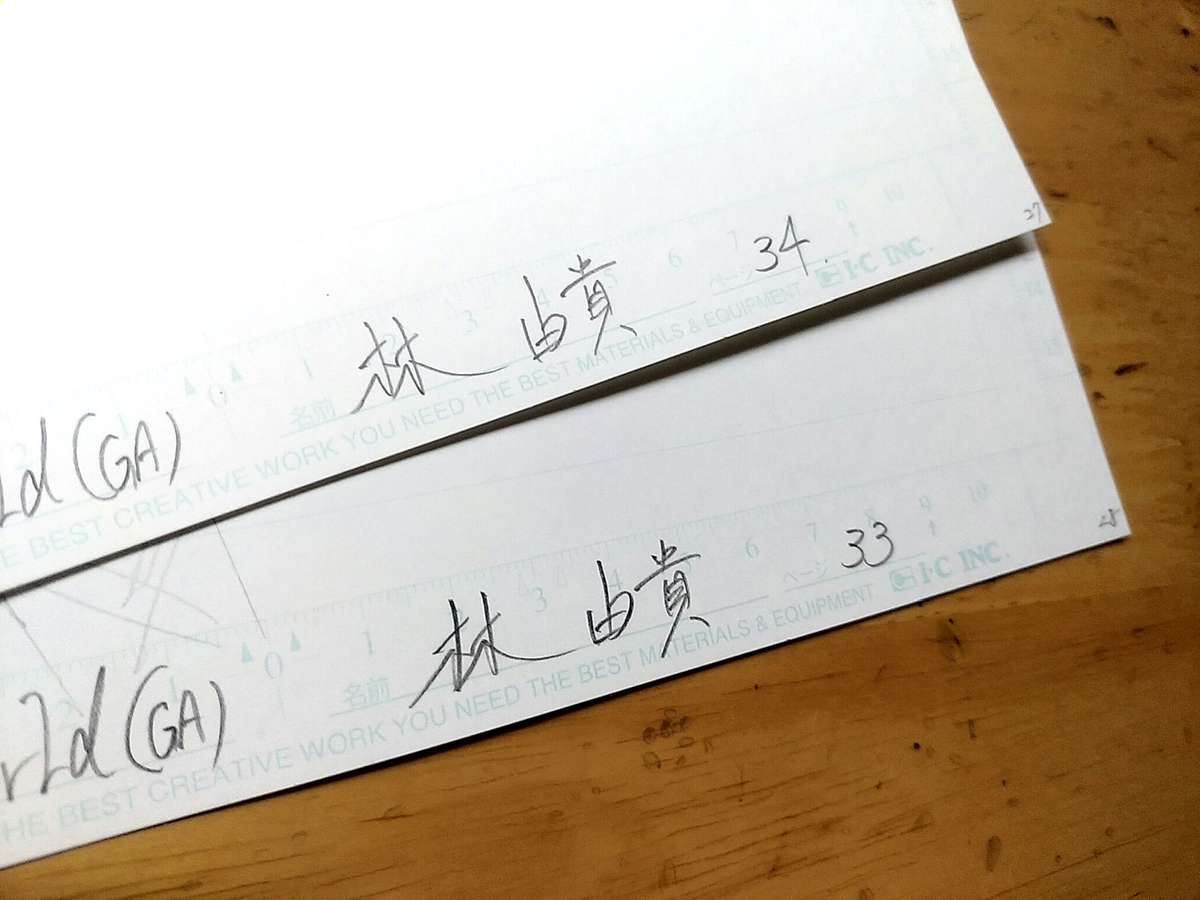 10
9
27
7
34
6
5
ページ
I·C INC.
4
3
2
1
林 由貴
0
名前
1
2
ld (GA)
E BEST CREATIVE WORK YOU NEED THE BEST MATERIALS & EQUIPMENT.
15
10
9
28
8
7
33
6
ページ
I·C INC.
4
3
1
林 由貴
0
名前
1
2
rld (GA)
THE BEST CREATIVE WORK YOU NEED THE BEST MATERIALS & EQUIPMENT.